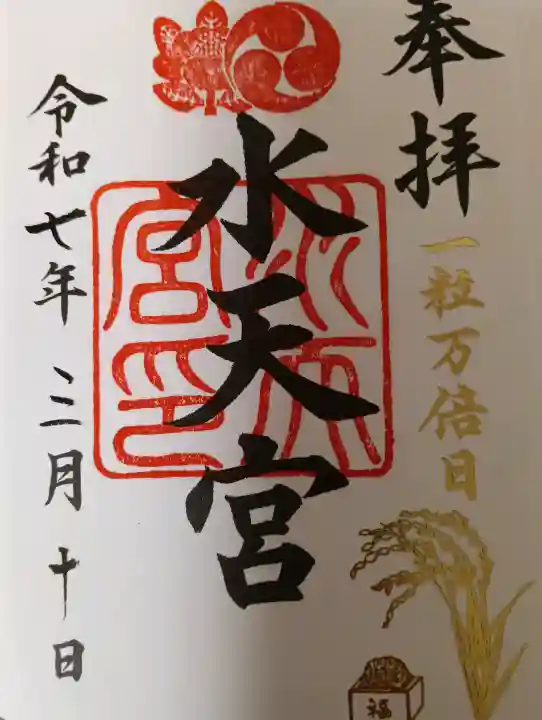 奉拝
一粒万倍日
水天宮
水天宮印
令和七年 三月 十日
福